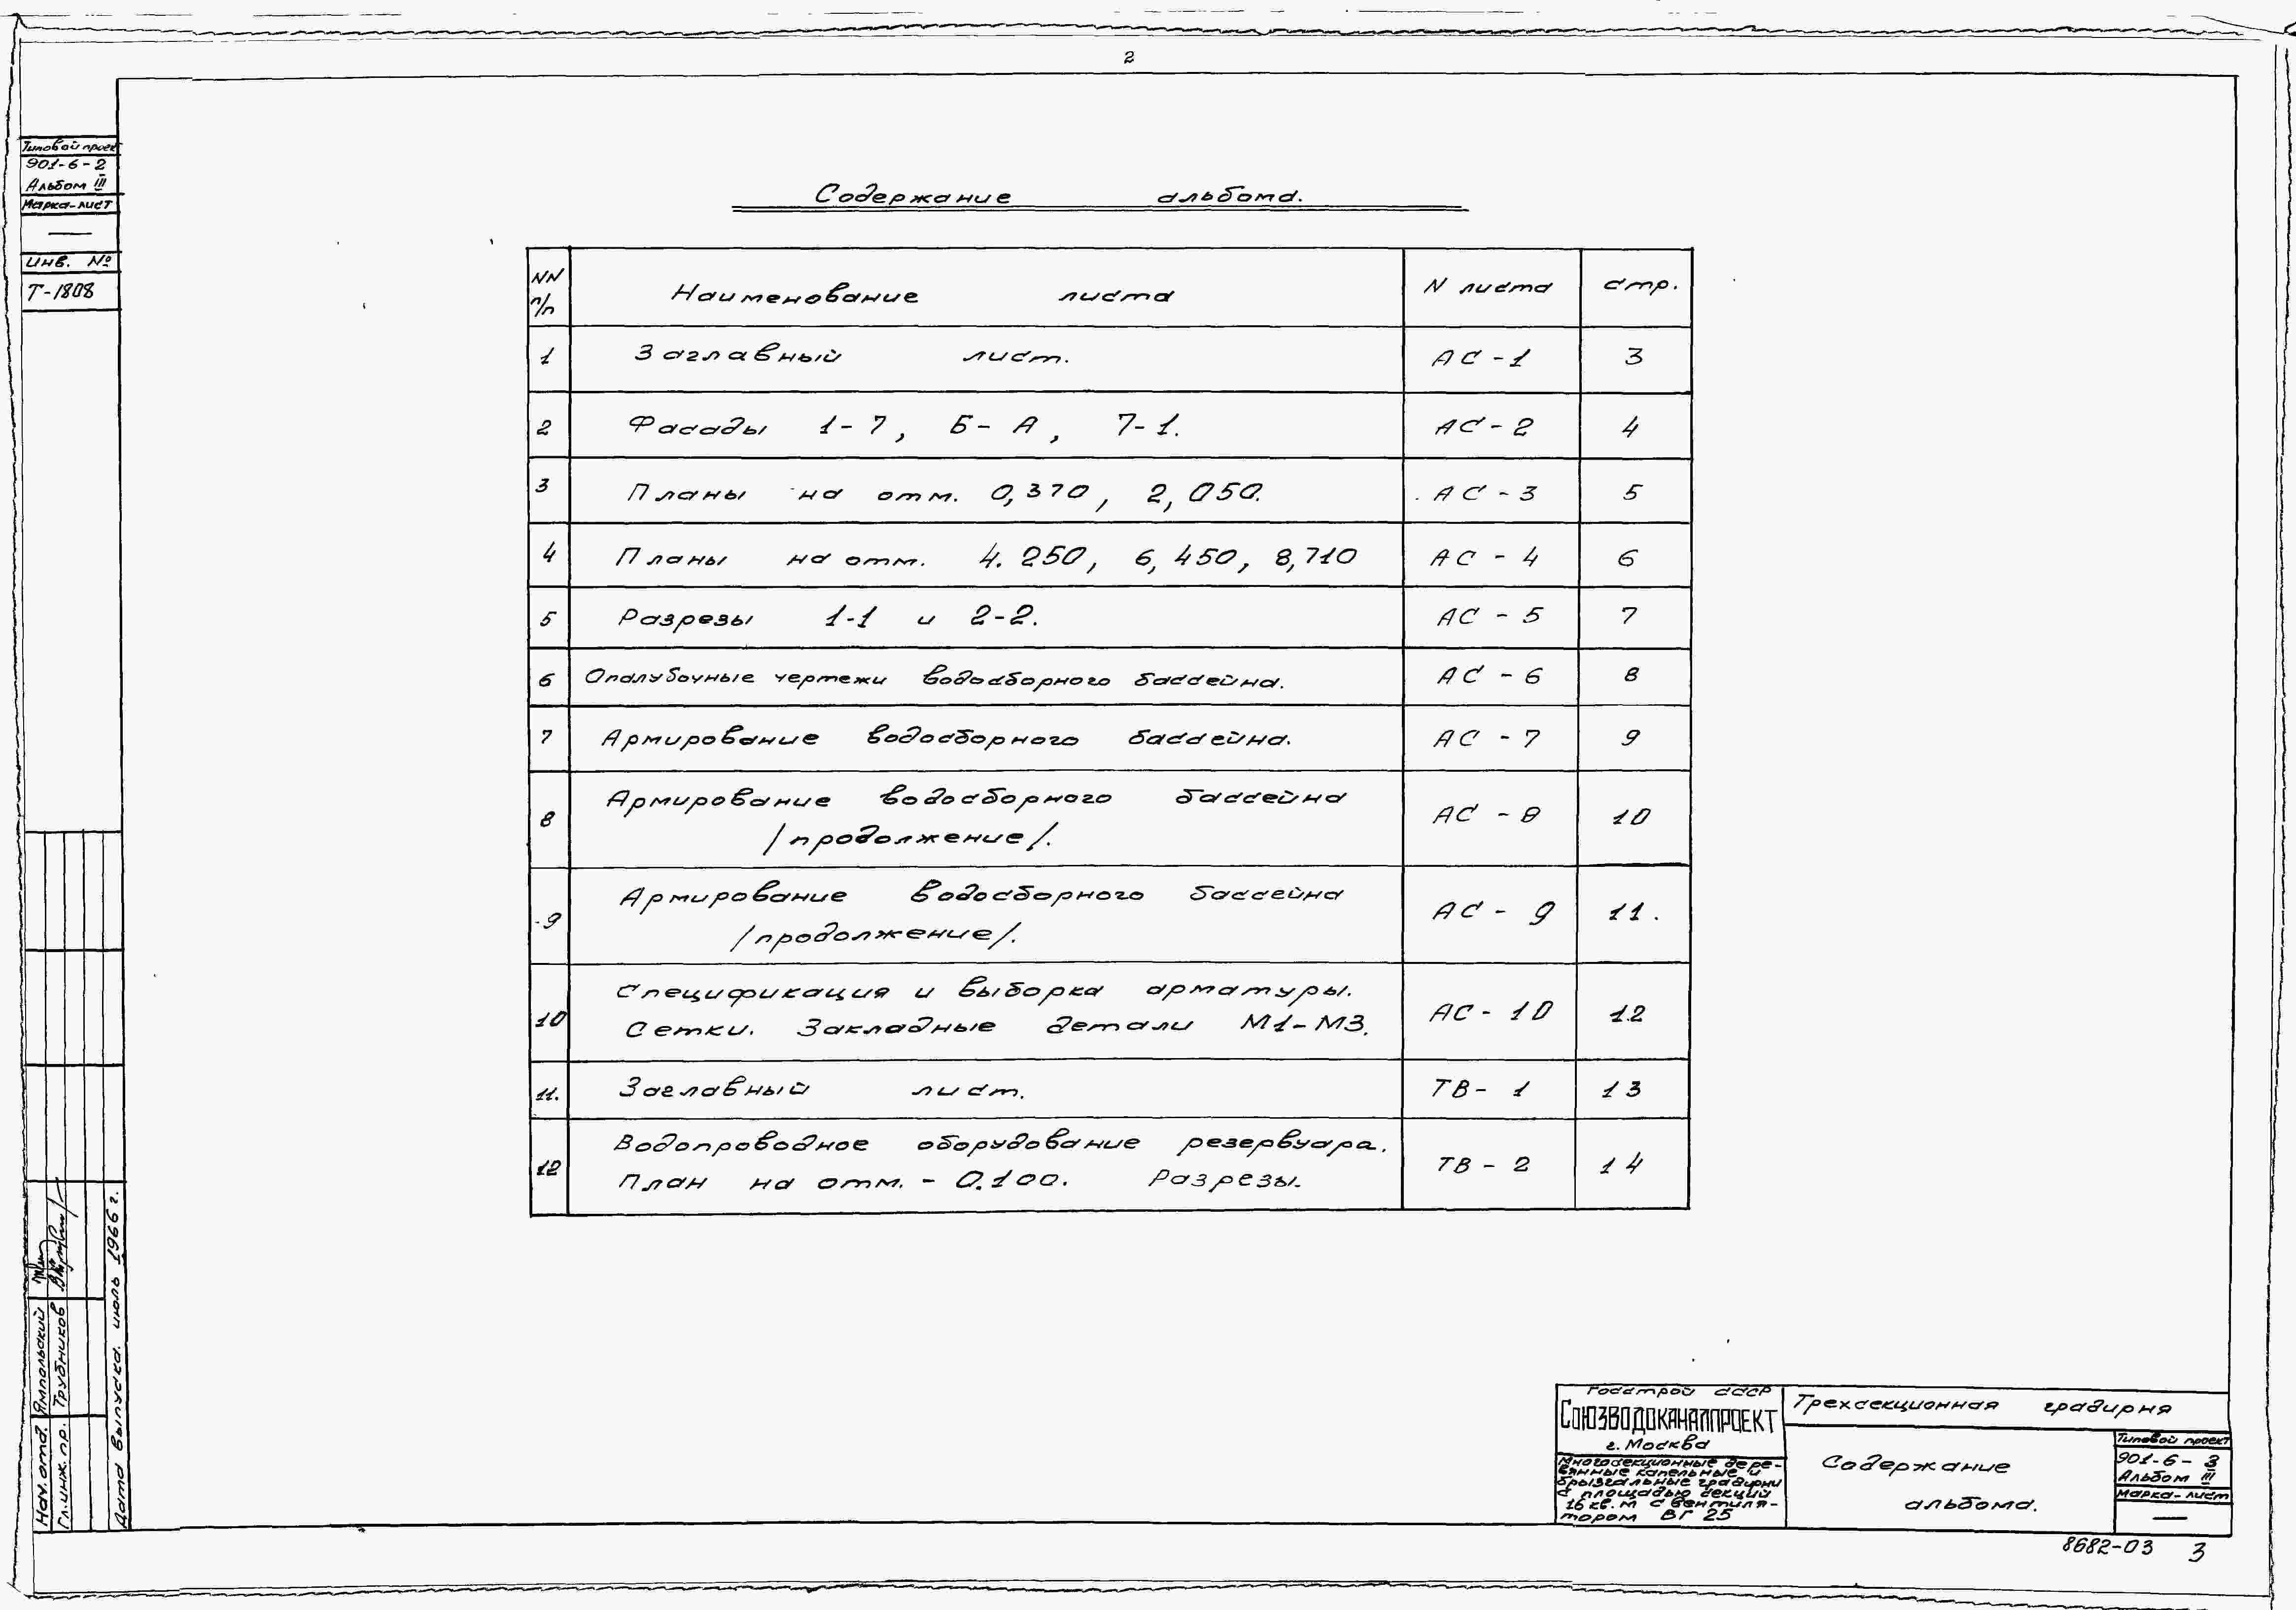 2
Типовой проект
901-6-2
Альбом III
Марка-лист
—
Инв. №
Т-1808
Содержание альбома.
NN п/п Наименование листа N листа стр.
1 Заглавный лист. АС-1 3
2 Фасады 1-7, Б-А, 7-1. АС-2 4
3 Планы на отм. 0,370, 2,050. АС-3 5
4 Планы на отм. 4.250, 6,450, 8,710 АС-4 6
5 Разрезы 1-1 и 2-2. АС-5 7
6 Опалубочные чертежи водосборного бассейна. АС-6 8
7 Армирование водосборного бассейна. АС-7 9
8 Армирование водосборного бассейна АС-8 10
/продолжение/.
9 Армирование водосборного бассейна АС-9 11.
/продолжение/.
10 Спецификация и выборка арматуры. АС-10 12
Сетки. Закладные детали М1-М3.
11. Заглавный лист. ТВ-1 13
12 Водопроводное оборудование резервуара. ТВ-2 14
План на отм. -0.100. Разрезы.
Нач. отд. Ямпольский
Гл. инж. пр. Трубников
Дата выпуска. июль 1966 г.
Госстрой СССР
СОЮЗВОДОКАНАЛПРОЕКТ
г. Москва
Многосекционные дере-
вянные капельные и
брызгальные градирни
с площадью секций
16 кв. м с вентиля-
тором ВГ 25
Трехсекционная градирня
Содержание
альбома.
Типовой проект
901-6-3
Альбом III
Марка-лист
—
8682-03 3